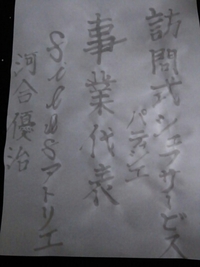 訪問式シェフサービス
パティシエ
事業代表
Sieusアトリエ
河合優治